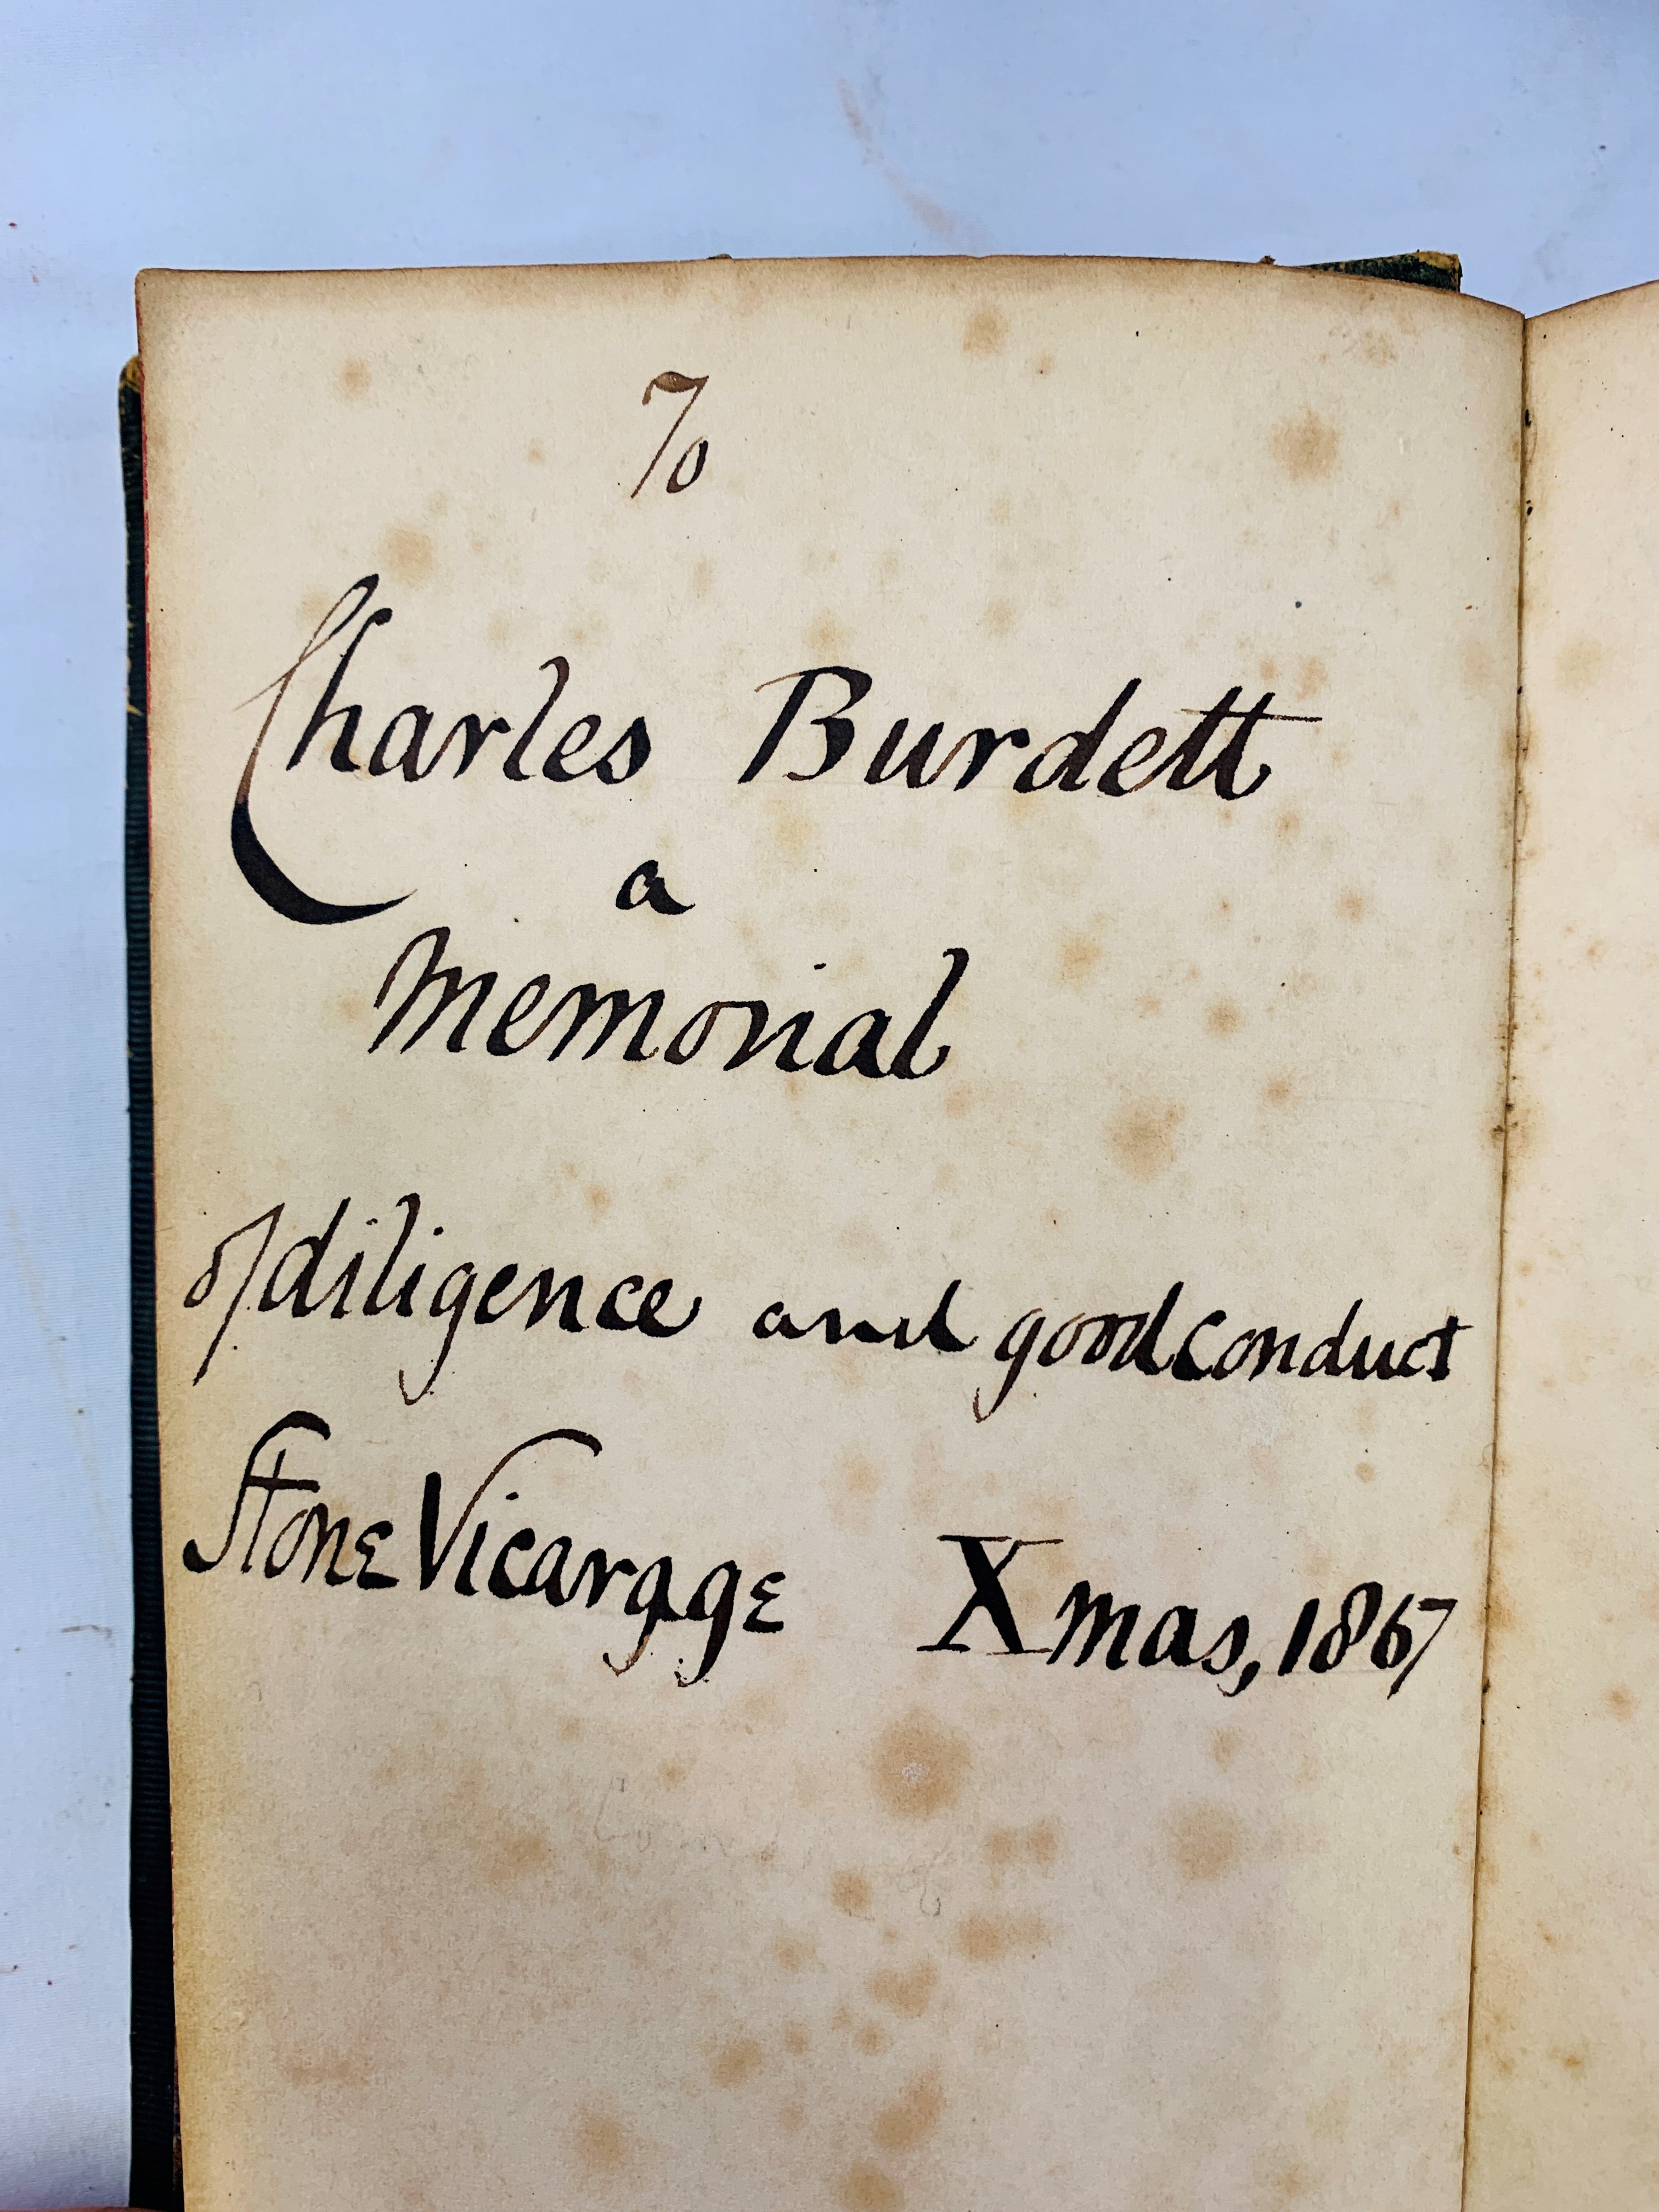 To
Charles Burdett
a
Memorial
of diligence and good conduct
Stone Vicarage Xmas, 1867